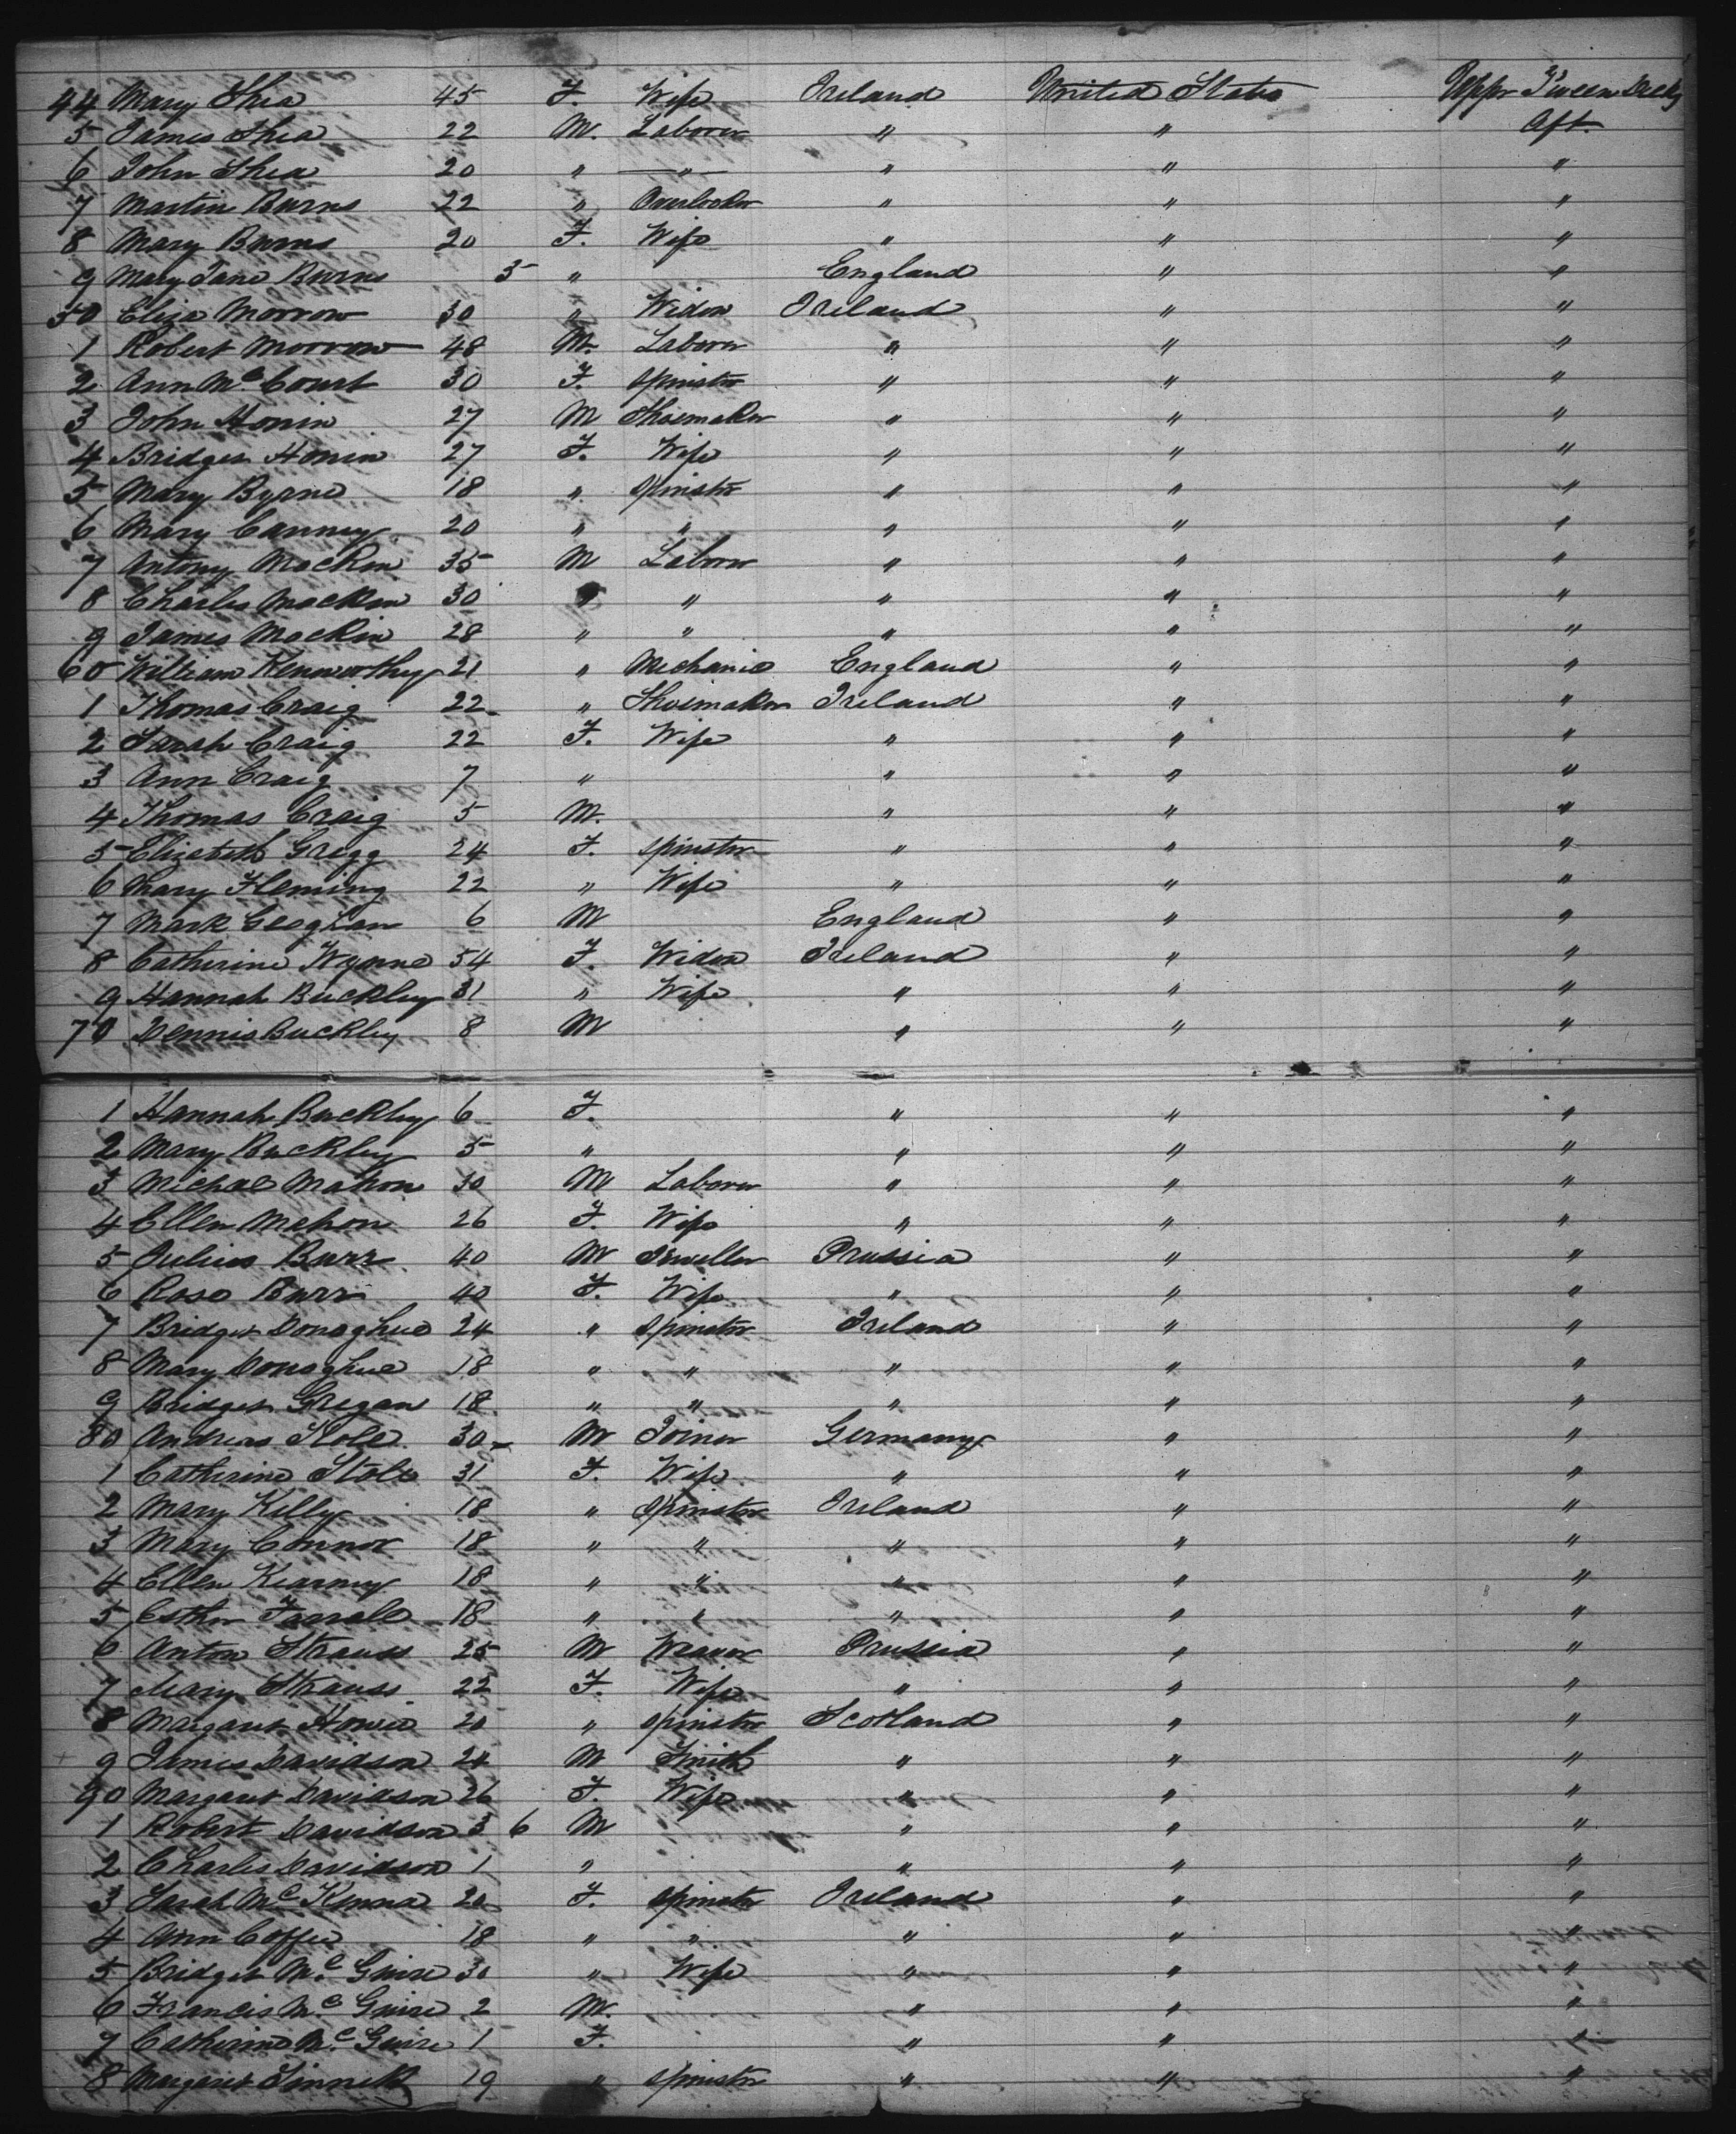 44 Mary Shea 45 F. Wife Ireland United States Upper Tween Decks
5 James Shea 22 M. Laborer " " Aft.
6 John Shea 20 " " " " "
7 Martin Burns 22 " Overlooker " " "
8 Mary Burns 20 F. Wife " " "
9 Mary Jane Burns 5 " England " "
50 Eliza Morrow 30 " Widow Ireland " "
1 Robert Morrow 48 M. Laborer " " "
2 Ann McCourt 30 F. Spinster " " "
3 John Honin 27 M Shoemaker " " "
4 Bridget Honin 27 F. Wife " " "
5 Mary Byrne 18 " Spinster " " "
6 Mary Canney 20 " " " " "
7 Antony Mackin 35 M Laborer " " "
8 Charles Mackin 30 " " " " "
9 James Mackin 28 " " " " "
60 William Kenworthy 21 " Mechanic England " "
1 Thomas Craig 22 " Shoemaker Ireland " "
2 Sarah Craig 22 F. Wife " " "
3 Ann Craig 7 " " " "
4 Thomas Craig 5 M. " " "
5 Elizabeth Gregg 24 F. Spinster " " "
6 Mary Fleming 22 " Wife " " "
7 Mark Geoghan 6 M England " "
8 Catherine Wynne 54 F. Widow Ireland " "
9 Hannah Buckley 31 " Wife " " "
70 Dennis Buckley 8 M " " "
1 Hannah Buckley 6 F. " " "
2 Mary Buckley 5 " " " "
3 Michael Mahon 30 M Laborer " " "
4 Ellen Mahon 26 F. Wife " " "
5 Julius Burr 40 M Jeweller Prussia " "
6 Rose Burr 40 F. Wife " " "
7 Bridget Donaghue 24 " Spinster Ireland " "
8 Mary Donaghue 18 " " " " "
9 Bridget Gregan 18 " " " " "
80 Andreas 30 M Joiner Germany " "
1 Catherine 31 F. Wife " " "
2 Mary Kelly 18 " Spinster Ireland " "
3 Mary Connor 18 " " " " "
4 Ellen Kearney 18 " " " " "
5 Esther Farrall 18 " " " " "
6 Anton Strauss 25 M Weaver Prussia " "
7 Mary Strauss 22 F. Wife " " "
8 Margaret Howie 20 " Spinster Scotland " "
9 James Davidson 24 M Smith " " "
90 Margaret Davidson 26 F. Wife " " "
1 Robert Davidson 3 6 M " " "
2 Charles Davidson 1 " " " "
3 Sarah McKenna 20 F. Spinster Ireland " "
4 Ann Coffee 18 " " " " "
5 Bridget McGuire 30 " Wife " " "
6 Francis McGuire 2 M. " " "
7 Catherine McGuire 1 F. " " "
8 Margaret Sinnett 19 " Spinster " " "